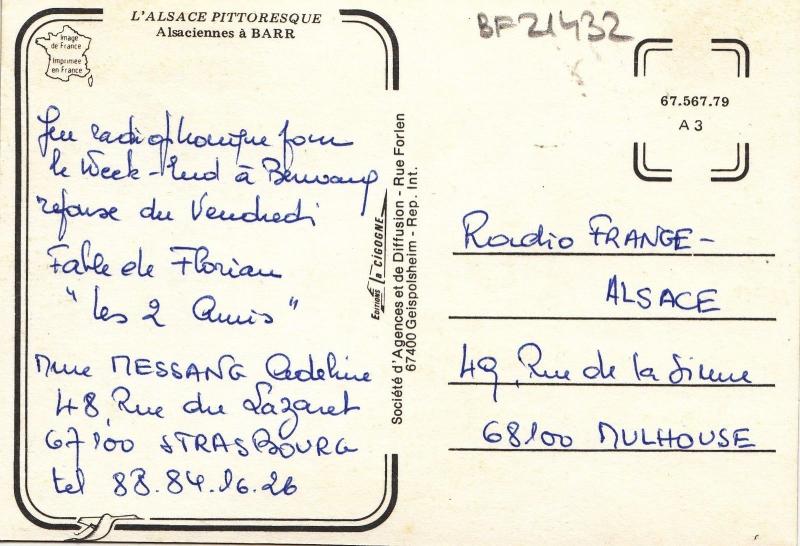 L'ALSACE PITTORESQUE
Alsaciennes à BARR
Image
de France
Imprimée
en France
BF21432
67.567.79
A 3
Jeu radiophonique pour
le Week-End à
reponse du Vendredi
Fable de Florian
"les 2 Amis"
Mme MESSANG Adeline
48, Rue du Lazaret
67100 STRASBOURG
tel 88.84.16.26
EDITIONS la CIGOGNE
Société d'Agences et de Diffusion - Rue Forlen
67400 Geispolsheim - Rep. Int.
Radio FRANCE-
ALSACE
49, Rue de la Sinne
68100 MULHOUSE